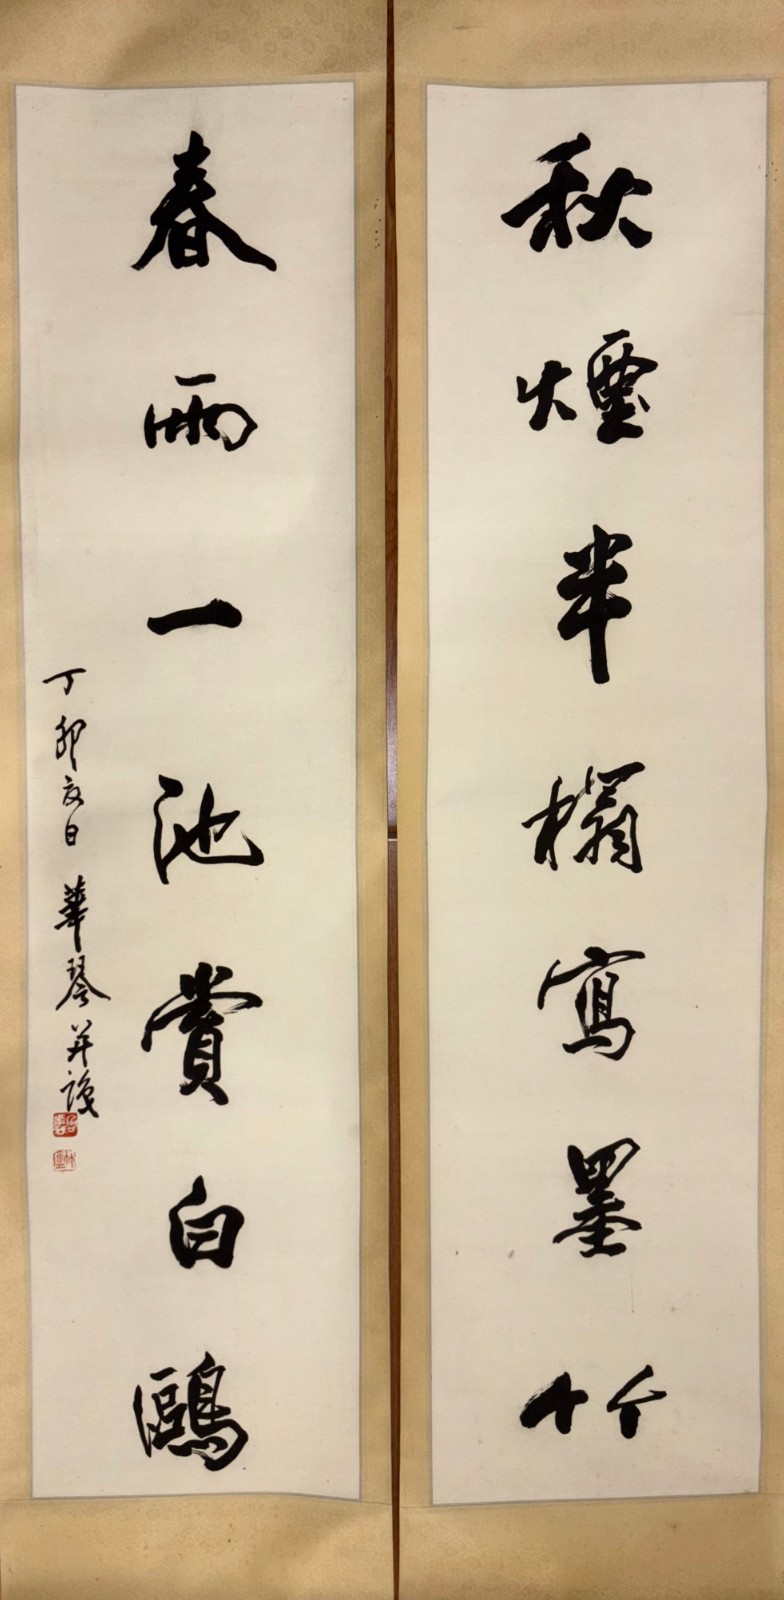 秋煙半榻寫墨竹
春雨一池賞白鷗
丁卯夏日 華琴并識